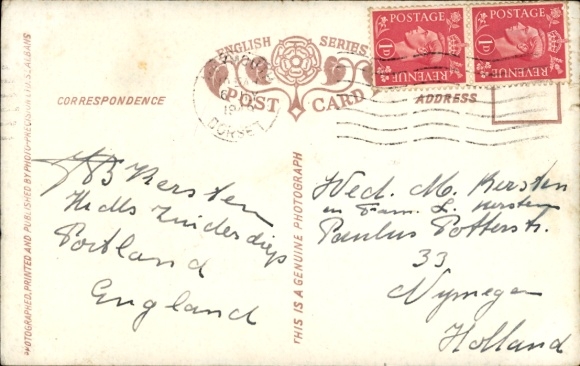 POSTAGE
1D
REVENUE
POSTAGE
1D
REVENUE
ENGLISH SERIES
POST CARD
DORSET
CORRESPONDENCE
ADDRESS
PHOTOGRAPHED, PRINTED AND PUBLISHED BY PHOTO-PRECISION LTD., ST. ALBANS
THIS IS A GENUINE PHOTOGRAPH
Kersten
Zuiderdiep
Portland
England
Wed. M. Kersten
en Fam. L. Kersten
Paulus Potterstr.
33
Nymegen
Holland